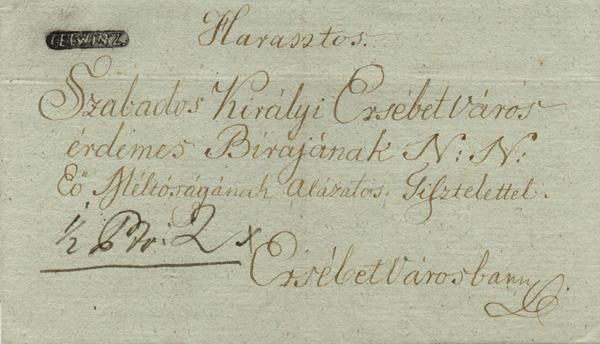 Harasztos.
Szabados Királyi Ersébet város
érdemes Birájának N: N:
Eő Méltóságának alázatos Tisztelettel.
1/2 2 x
Ersébetvárosbann